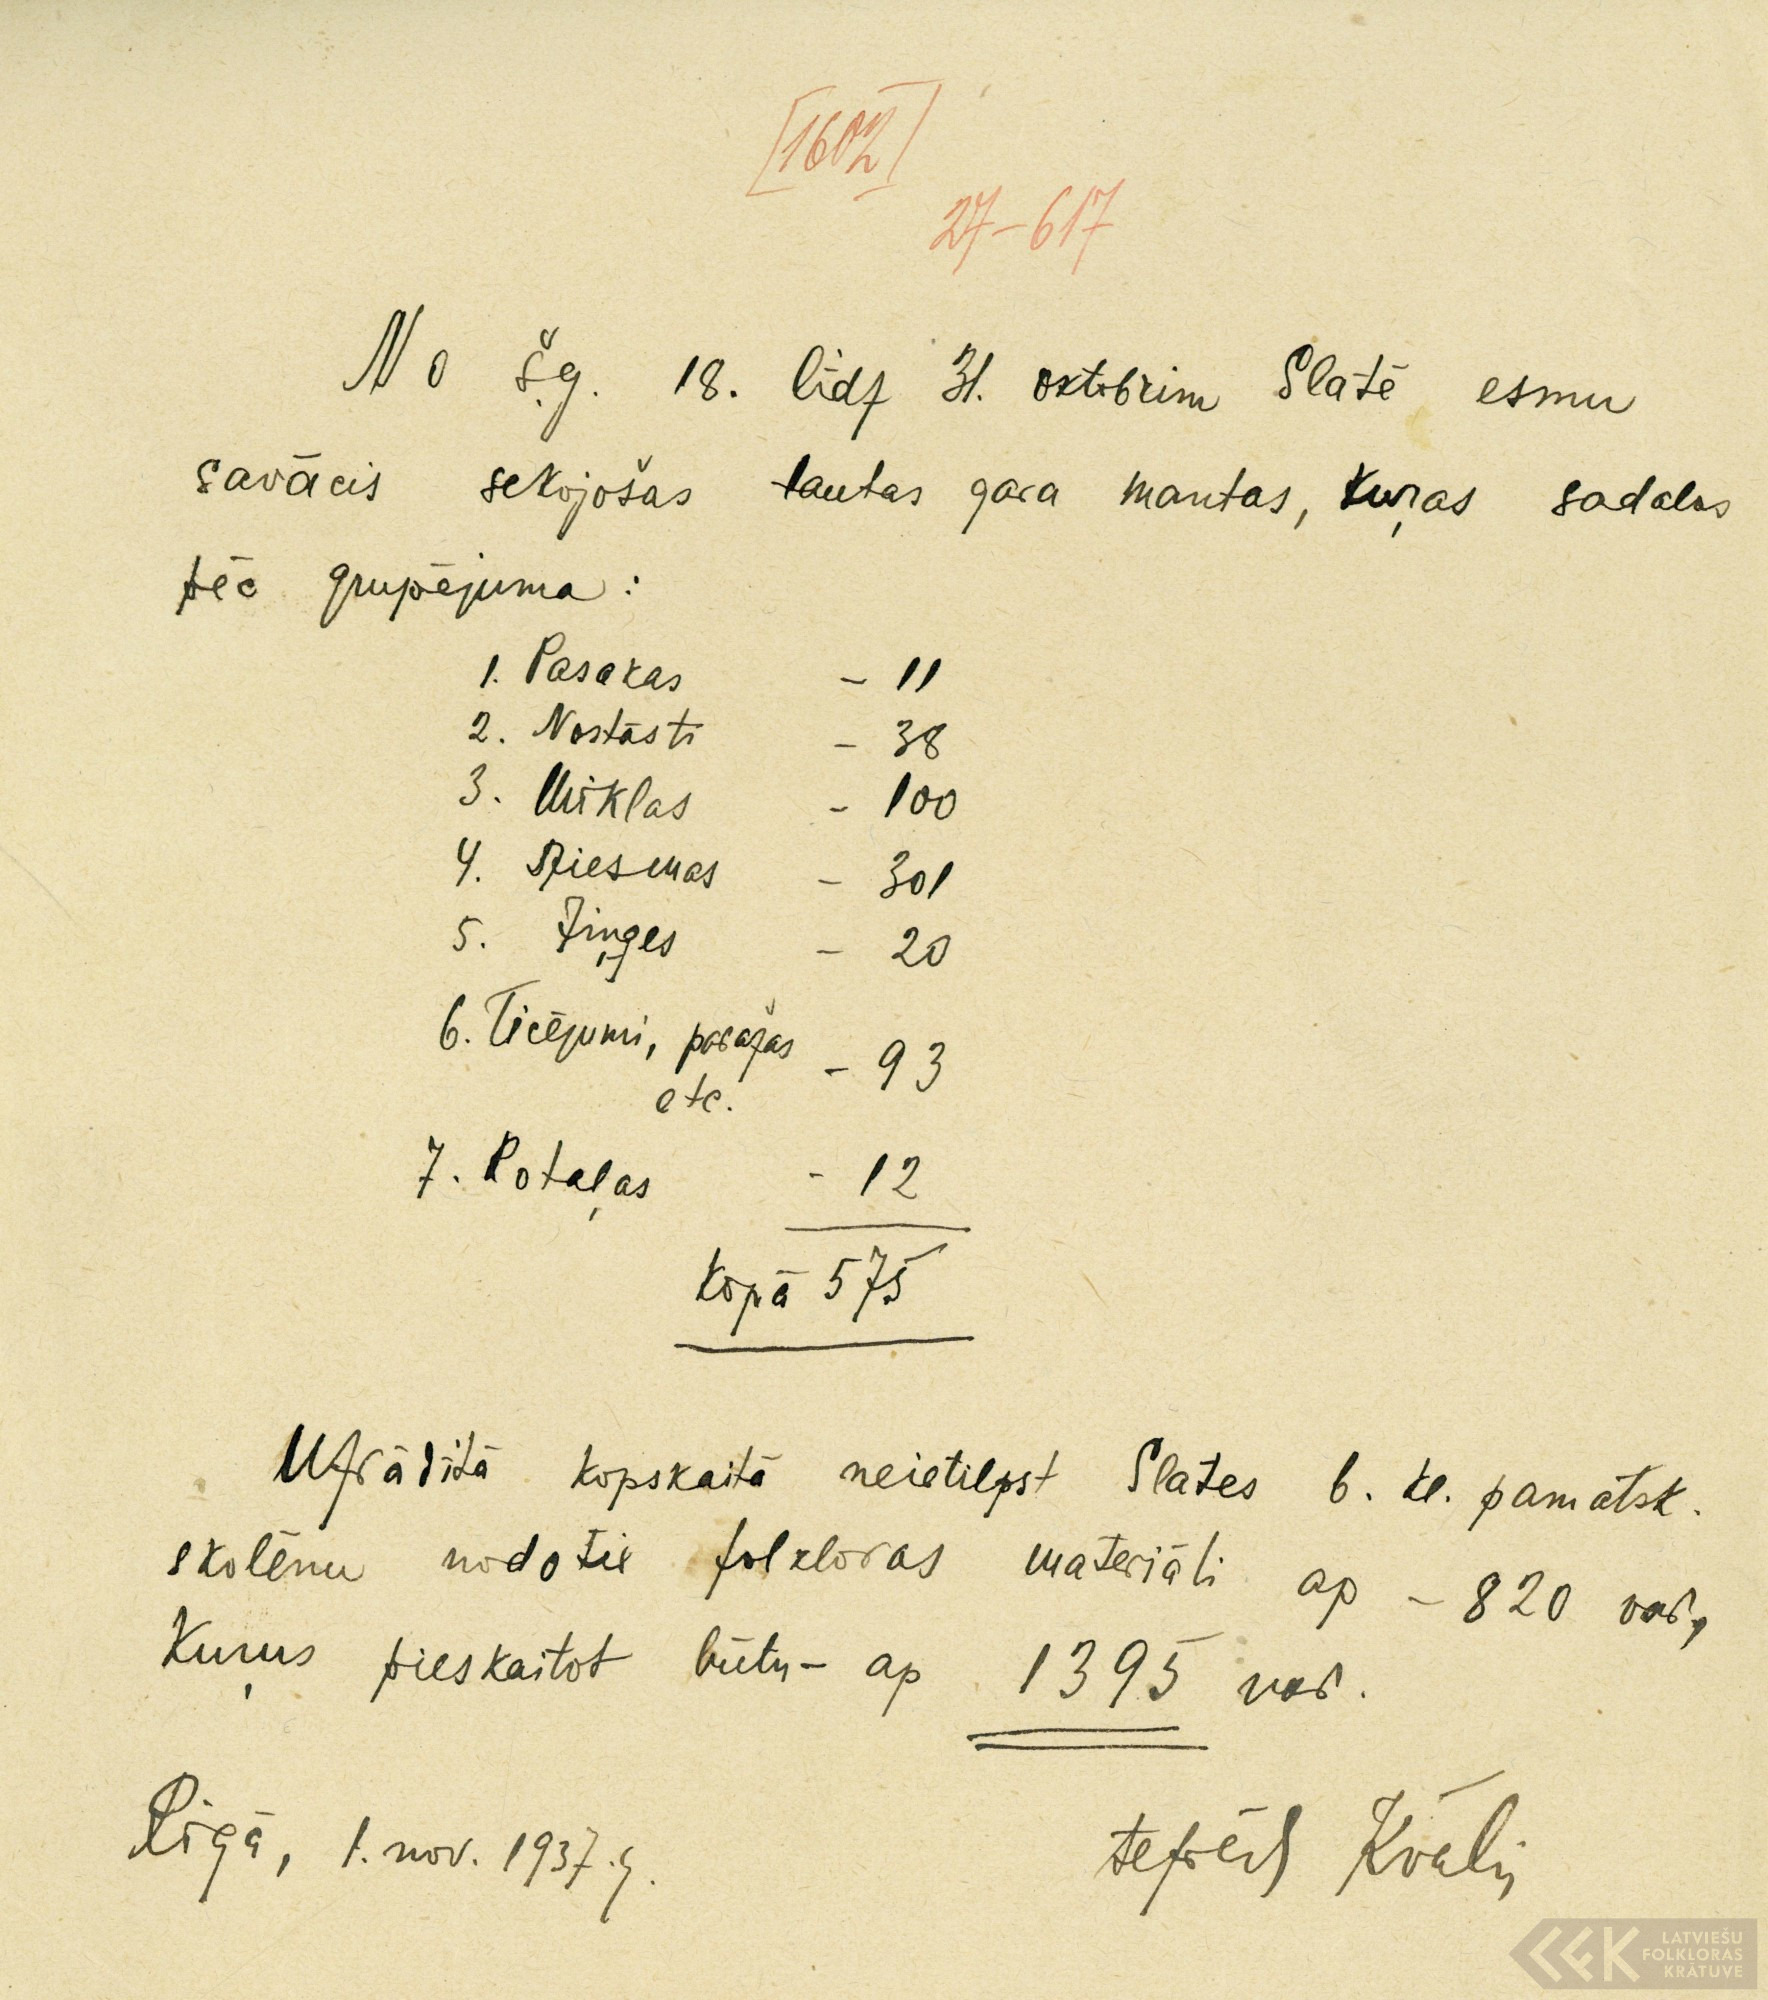 [1602]
27-617
No š.g. 18. līdz 31. oktobrim Slatē esmu
savācis sekojošas tautas gara mantas, kuŗas sadalas
pēc grupējuma:
1. Pasakas - 11
2. Nostāsti - 38
3. Mīklas - 100
4. Dziesmas - 301
5. Ziņģes - 20
6. Ticējumi, paražas - 93
etc.
7. Rotaļas - 12
Kopā 575
Uzrādītā kopskaitā neietilpst Slates 6. kl. pamatsk.
skolēnu nodotie folkloras materiāli ap - 820 var,
Kuŗus pieskaitot būtu - ap 1395 var.
Rīgā, 1. nov. 1937.g.
LATVIEŠU
FOLKLORAS
KRĀTUVE